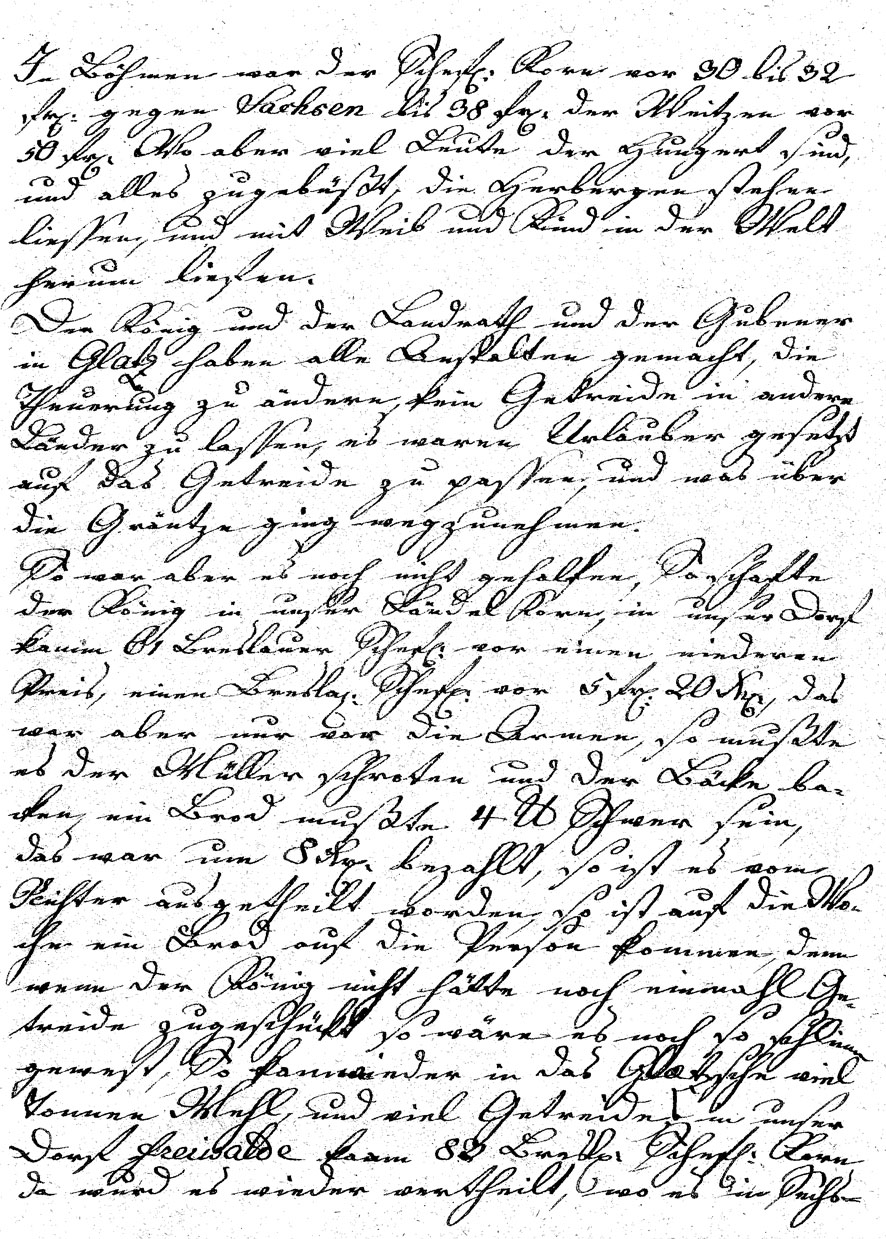 In Böhmen war der Scheffl: Korn vor 30 bis 32
fr: gegen Sachsen bis 38 fr: der Weitzen vor
50 fr: Wo aber viel Leute der Hungert sind,
und alles zugebüßt, die Herbergen stehen
liessen, und mit Weib und Kind in der Welt
herum liefen.
Der König und der Landrath und der Gubener
in Glatz haben alle Anstalten gemacht, die
Theuerung zu ändern, kein Getreide in andere
Länder zu lassen, es waren Urläuber gesetzt
auf das Getreide zu passen, und was über
die Gräntze ging wegzunehmen.
So war aber es noch nicht geholfen, So schafte
der König in unser Ländel Korn, in unser Dorf
kamm 61 Breslauer Scheffl: vor einen niederen
Preis, einen Bresla: Scheffl: vor 5 fr: 20 Kr:, das
war aber nur vor die Armen, so mußte
es der Müller schroten und der Bäcke ba-
cken, ein Brod mußte 4 ℔ Schwer sein,
das war um 8 Kr: bezahlt, so ist es vom
Richter ausgetheilt worden, so ist auf die Wo-
che ein Brod auf die Person kommen, denn
wenn der König nicht hätte noch einmahl Ge-
treide zugeschückt so wäre es noch so schlimm
gewest, So kam wieder in das Glatzsche viel
Tonnen Mehl, und viel Getreide, in unser
Dorf Freiwalde kamm 82 Bresl: Scheffl: Korn
da wurd es wieder vertheilt, wo es in Sechs-